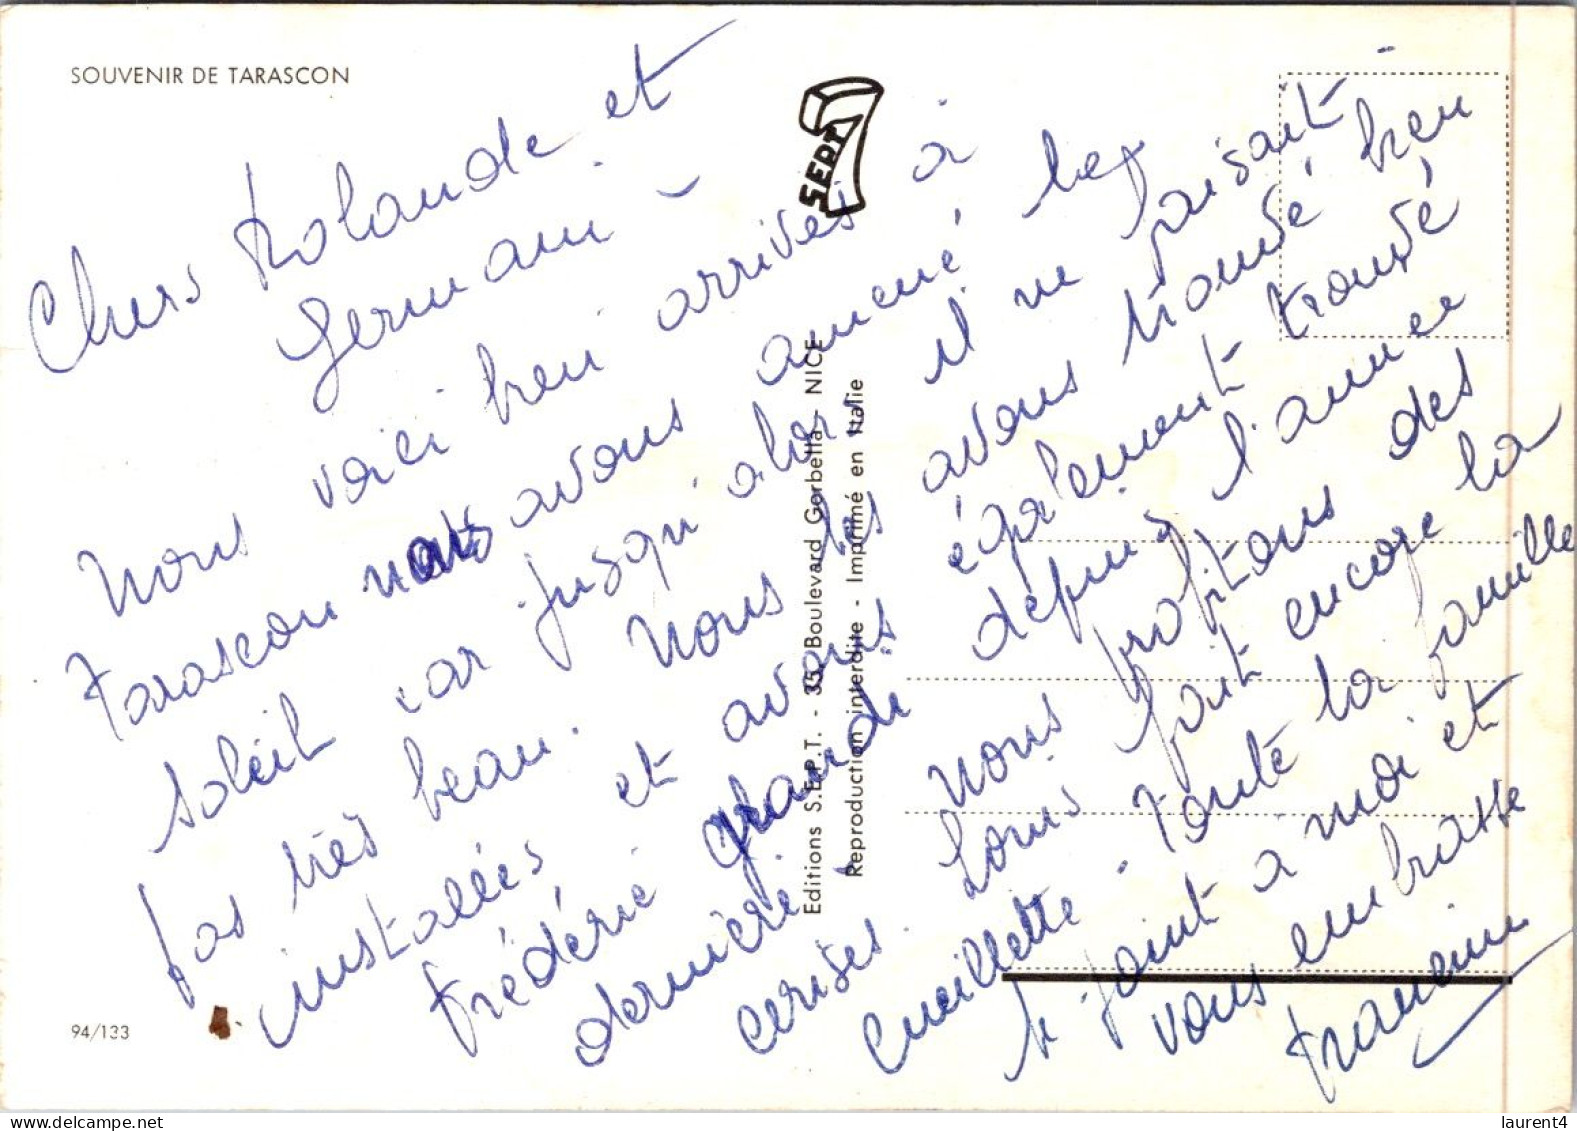 SOUVENIR DE TARASCON
SEPT 7
Chers Rolande et
Germain
Nous voici bien arrivés à
Tarascon nous avons amené le
soleil car jusqu'alors il ne faisait
pas très beau. Nous les avons trouvé bien
installés et avons également trouvé
Frédéric grandi depuis l'année
dernière. Nous profitons des
cerises. Louis fait encore la
cueillette. Toute la famille
se joint à moi et
vous embrasse
Francine
Editions S.E.P.T. - 35, Boulevard Gorbella - NICE
Reproduction interdite - Imprimé en Italie
94/133
laurent4